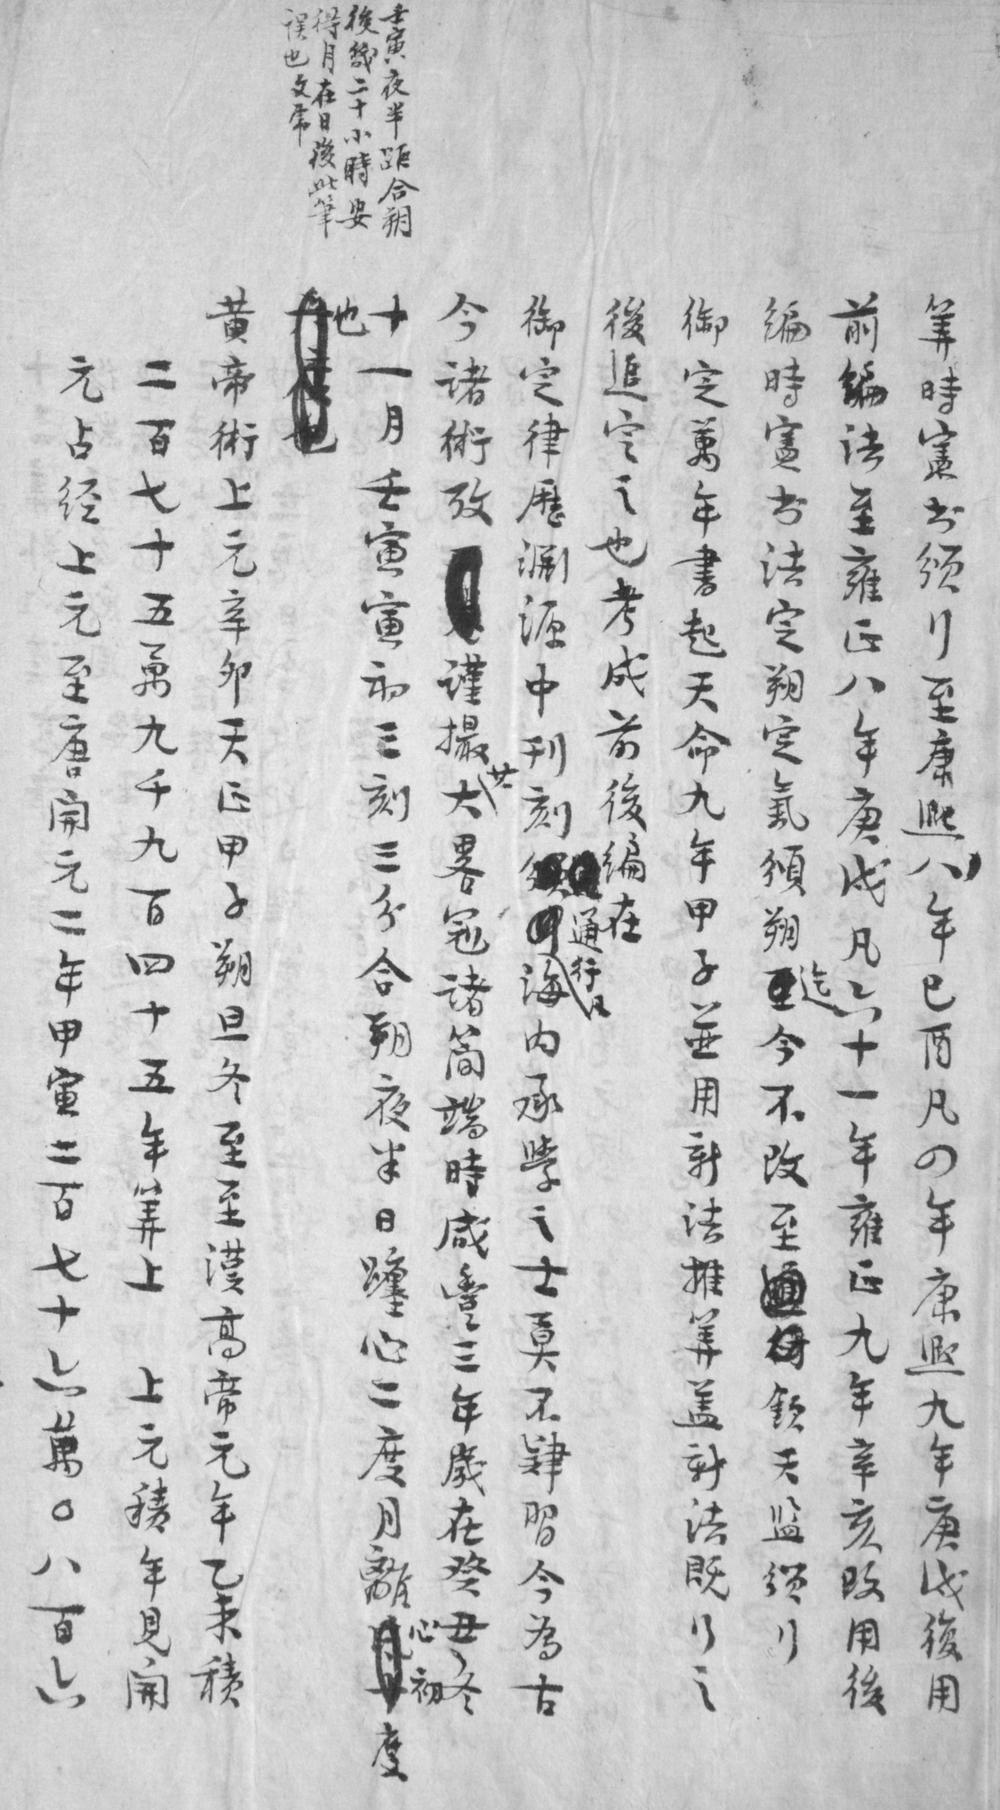 算時憲书頒行至康熙八年己酉凡四年康熙九年庚戌後用
前編法至雍正八年庚戌凡六十一年雍正九年辛亥改用後
編時憲书法定朔定氣頒朔迄今不改至欽天監頒行
御定萬年書起天命九年甲子並用新法推算蓋新法既行之
後追定之也考成前後編在
御定律歷淵源中刊刻通行海内承學之士莫不肄習今為古
今諸術攷謹撮其大畧冠諸簡端時咸豐三年歲在癸丑冬
十一月壬寅寅初三刻三分合朔夜半日躔心二度月離心初度
也
黃帝術上元辛卯天正甲子朔旦冬至至漢高帝元年乙未積
二百七十五萬九千九百四十五年算上 上元積年見開
元占经上元至唐開元二年甲寅二百七十六萬〇八百六
壬寅夜半距合朔
後幾二十小時安
得月在日後此筆
誤也文虎